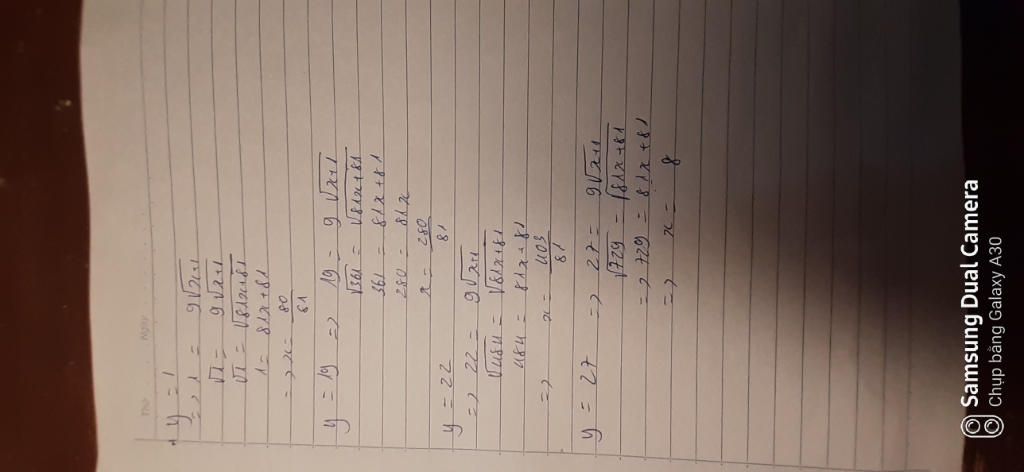 Thứ
Ngày
y = 1
=> 1 = 9√x+1
√1 = 9√x+1
√1 = √81x+81
1 = 81x+81
=> x = 80/81
y = 19 => 19 = 9√x+1
√361 = √81x+81
361 = 81x+81
280 = 81x
x = 280/81
y = 22
=> 22 = 9√x+1
√484 = √81x+81
484 = 81x+81
=> x = 403/81
y = 27 => 27 = 9√x+1
√729 = √81x+81
=> 729 = 81x+81
=> x = 8
Samsung Dual Camera
Chụp bằng Galaxy A30